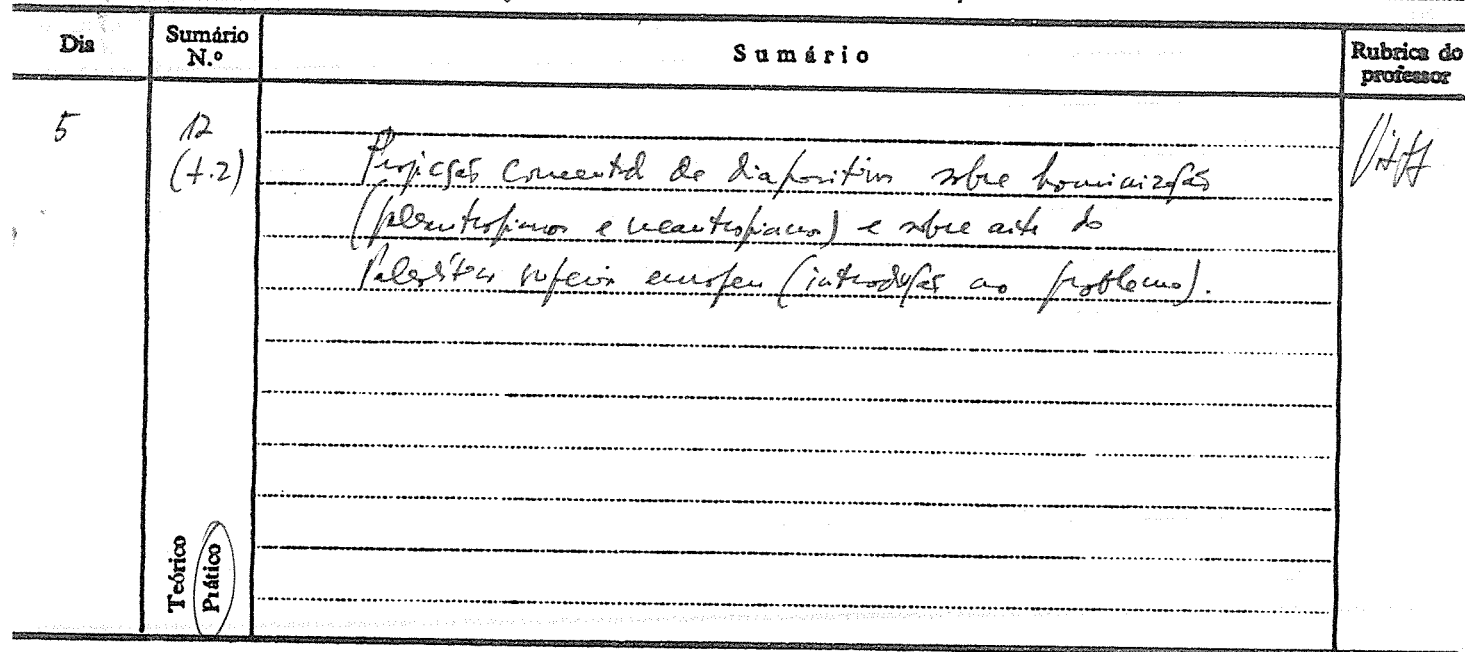 Dia
Sumário N.º
Sumário
Rubrica do professor
5
12
(t.2)
Projecção comentada de diapositivos sobre hominização
(paleantropianos e neantropianos) e sobre arte do
Paleolítico superior europeu (introdução ao problema).
Teórico
Prático